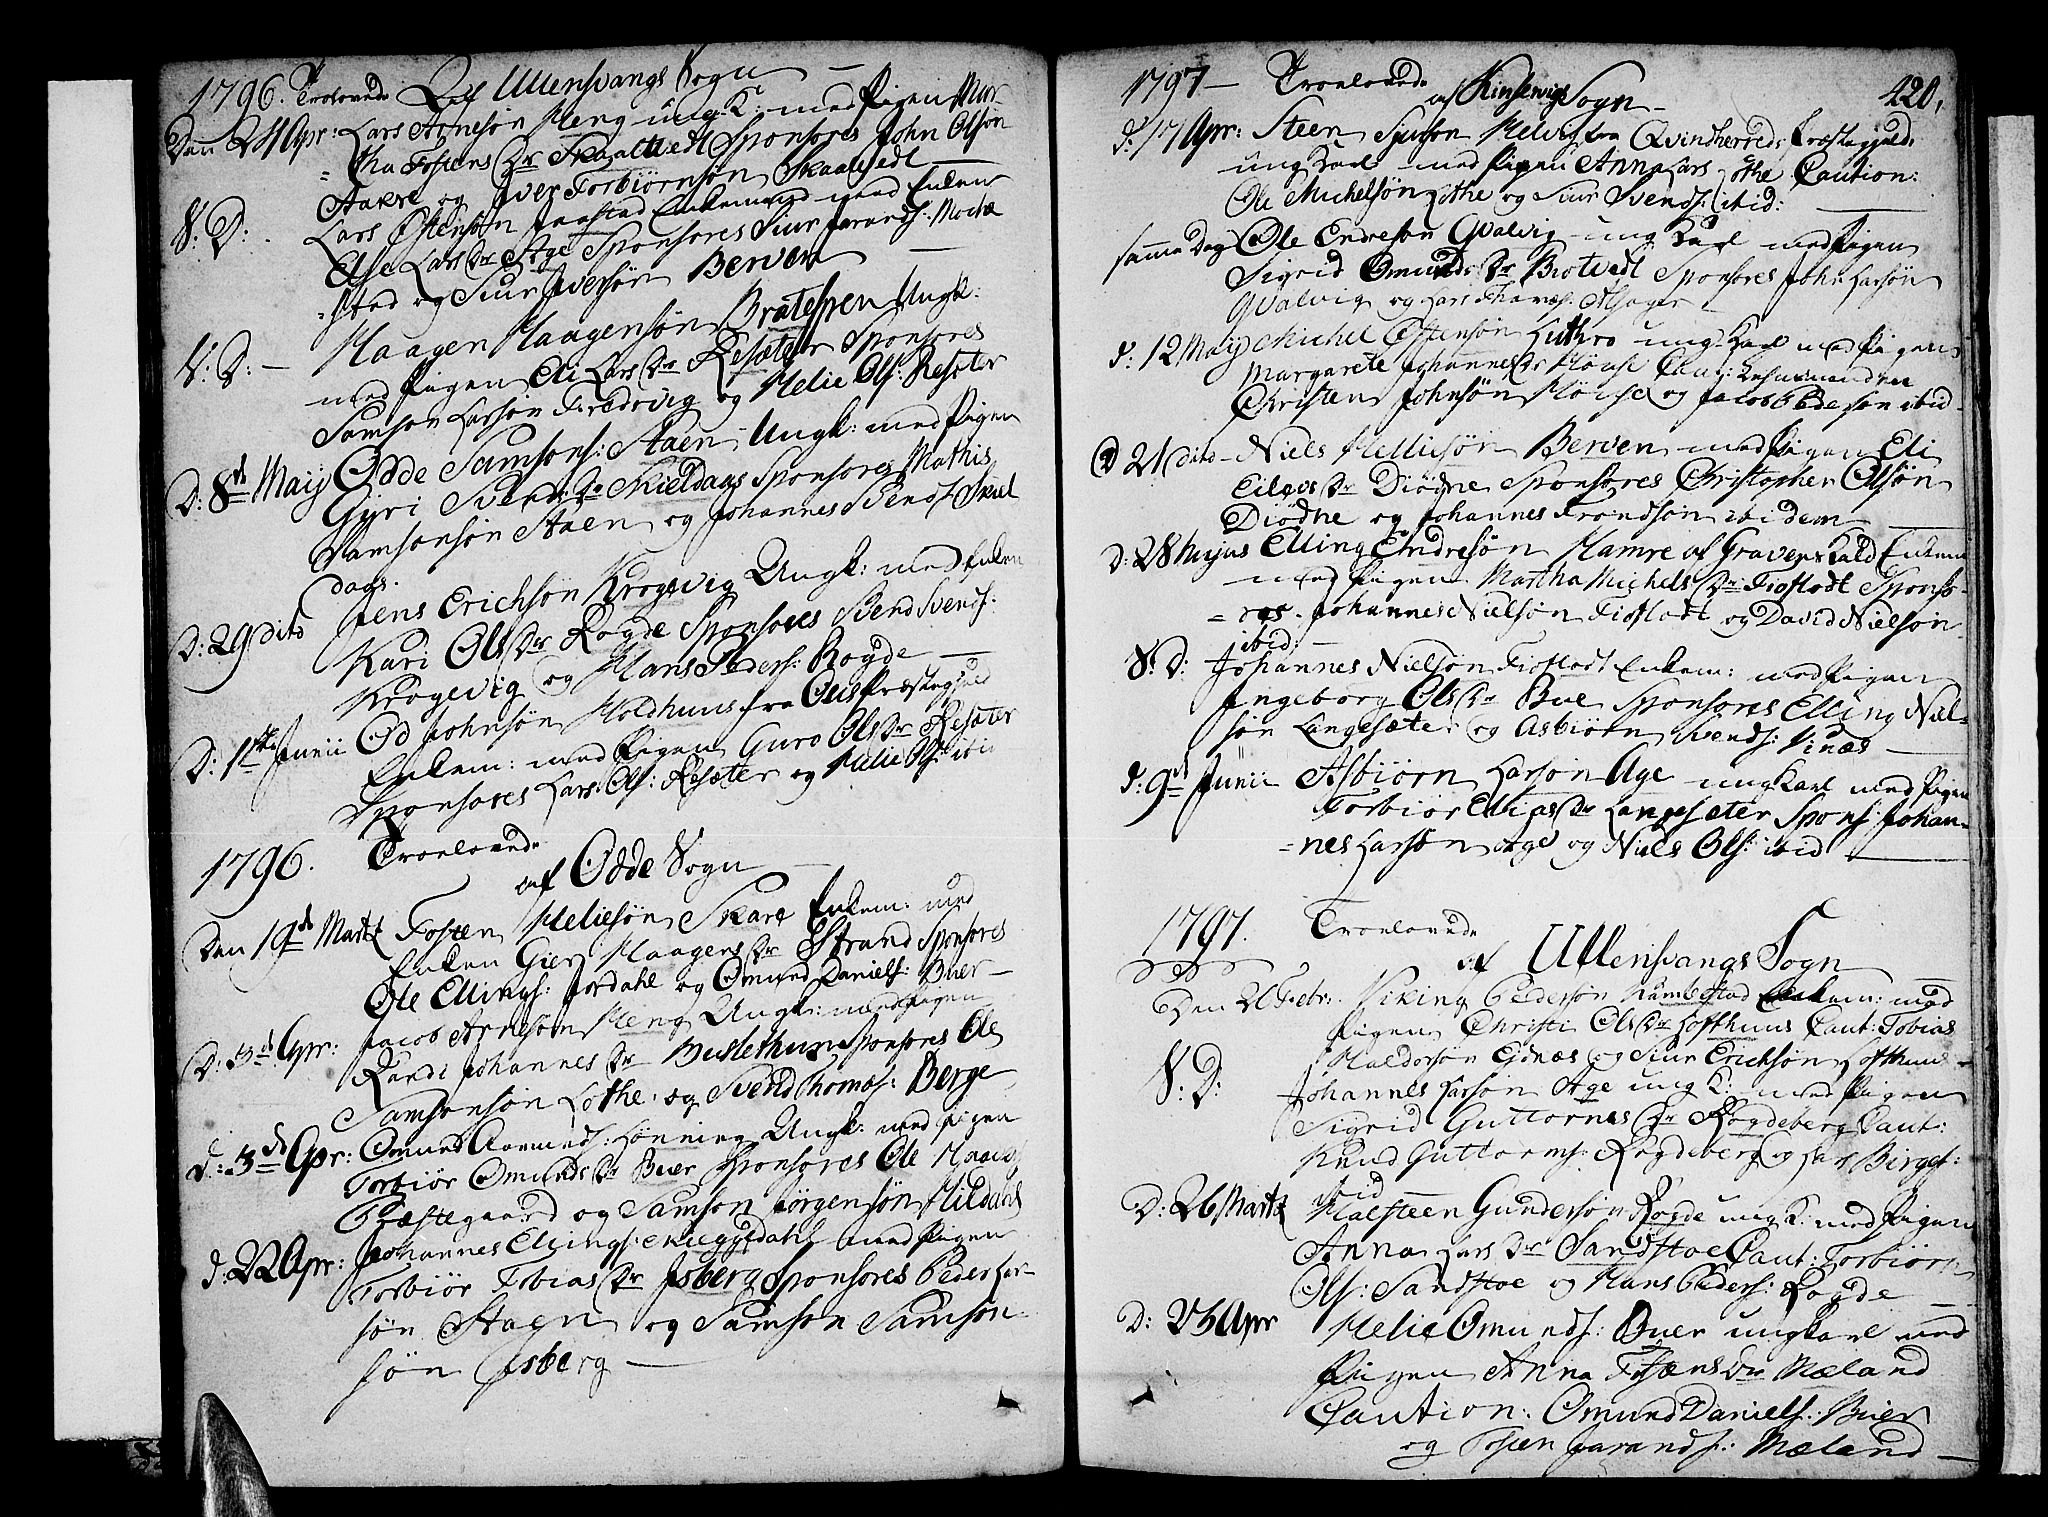 1796. Troelovede af Ullensvangs Sogn —
Den 24 Apr: Lars Arnesøn Meng ung K: med Pigen Mar-
=tha Tostens Dr Skaaltvedt Sponsores John Olsøn
Aakre og Iver Torbiørnsøn Skaaltvedt —
S: D: Lars Østensøn Jaastad Enkemand med Enken
Else Lars Dr Age Sponsores Siur Jarands: Mockæ
=stad og Siur Iversøn Berven —
S: D: — Haagen Haagensøn Bratespen Ungk:
med Pigen Eli Lars Dr Resæter Sponsores
Samson Larsøn Fredsvig og Helie Ols: Resæter
D: 8de Maij Odde Samsons: Staen Ungk: med Pigen
Gyri Svends Dr Skieldaas Sponsores Mathis
Samsonsøn Staen og Johannes Svends: Skiel
daas.
D: 29 dito Jens Erichsøn Krogevig Ungk: med Enken
Kari Ols Dr Rogde Sponsores Svend Svends:
Krogevig og Hans Peders: Rogde —
D: 1ste Junii Od Johnsøn Holdhuus fra Oeis Præstegield
Enkem: med Pigen Guro Ols Dr Resæter
Sponsores Lars Ols: Resæter og Helie Ols: ibi
1796. Troelovede
af Odde Sogn —
Den 19de Martz Tosten Heliesøn Skare Enkem: med
Enken Gier Haagens Dr Strand Sponsores
Ole Ellings: Jordahl og Omund Daniels: Buer —
D: 3de Apr: Jacob Arnesøn Meng Ungk: med Pigen
Randi Johannes Dr Bustethun Sponsores Ole
Samsonsøn Lothe, og Svend Thomæs: Berge
d: 3de Apr: Omund Aamunds: Lønning Ungk: med Pigen
Torbiør Omunds Dr Buer Sponsores Ole
Præstegaard og Samson Jørgensøn Hildahl
d: 22 Apr: Johannes Ellings: med Pigen
Torbiør Tobias Dr Isberg Sponsores Peder Lar-
søn Staen og Samson Samson
søn Isberg —
1797 — Troelovede af Kinservigs Sogn — 420,
d: 17 Apr: Steen Siursøn Helvig fra Qvindherreds Præstegield.
ung Karl med Pigen Anna Lars Dr Lothe Caution:
Ole Michelsøn Lothe og Siur Svends: ibid: —
samme Dag Ole Endresøn Qvalvig ung Karl med Pigen
Sigrid Omunds Dr Brotvedt Sponsores John Larsøn
Qvalvig og Lars Thomæs: Alsager —
d: 12 Maij Michel Østensøn Luthro ung Karl med Pigen
Margarete Johannes Dr House Caut:
Christen Johnsøn House og Jacob Pedersøn ibid —
D 21 dito — Niels Helliesøn Berven — med Pigen Eli
Eilevs Dr Diødne Sponsores Christopher Olsøn
Diødne og Johannes Trondsøn ibidem —
D: 28 Majus Elling Endresøn Hamre af Gravens Kald Enkem
med Pigen Martha Michels Dr Tioflodt Sponso-
=res. Johannes Nielsøn Tioflodt og David Nielsøn
ibid: —
S: D: Johannes Nielsøn Tioflodt Enkem: med Pigen
Ingeborg Ols Dr Bue Sponsores Elling Niel=
søn Langesæter og Asbiørn Svends: Vinæs —
d: 9de Junii Asbiørn Larsøn Age ung Karl med Pigen
Torbiør Ellias Dr Langesæter Spons: Johan-
=nes Larsøn Age og Niels Ols: ibid —
1797. Troelovede
af Ullensvangs Sogn
Den 26 Febr: Viking Pedersøn Hambestad Enkem: med
Pigen Christi Ols Dr Lofthuus Caut: Tobias
Haldorsøn Eidnæs og Siur Erichsøn Lofthuus —
S: D: Johannes Larsøn Age ung K: med Pigen
Sigrid Guttorms Dr Rogdeberg Caut:
Knud Guttorms: Rogdeberg og Lars Birges:
ibid
D: 26 Martz Halsteen Gundersøn Rogde ung K: med Pigen
Anna Lars Dr Sandstoe Caut: Torbiørn
Ols: Sandstoe og Hans Peders: Rogde —
D: 23 Apr Helie Omunds: Buer ung Karl med
Pigen Anna Tostens Dr Mæland
Caution: Omund Daniels: Buer
og Tosten Jarands: Mæland —